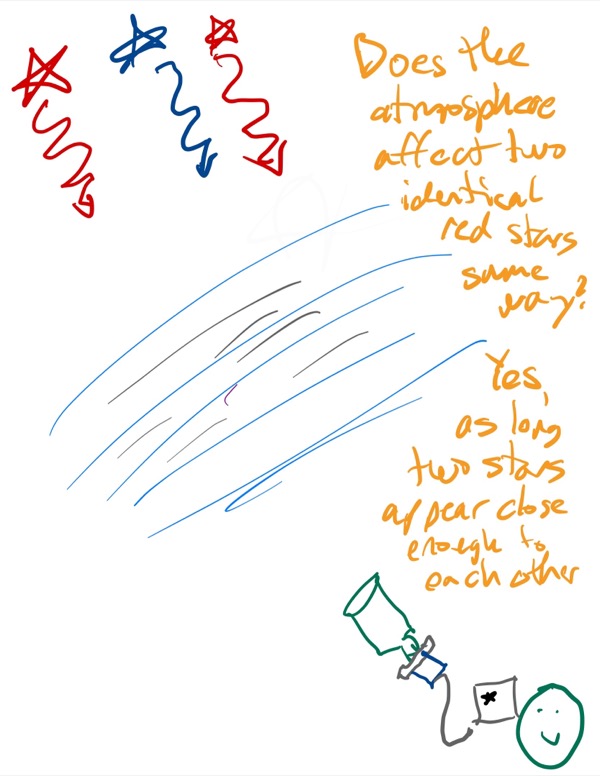 Does the
atmosphere
affect two
identical
red stars
same
way?
Yes,
as long
two stars
appear close
enough to
each other